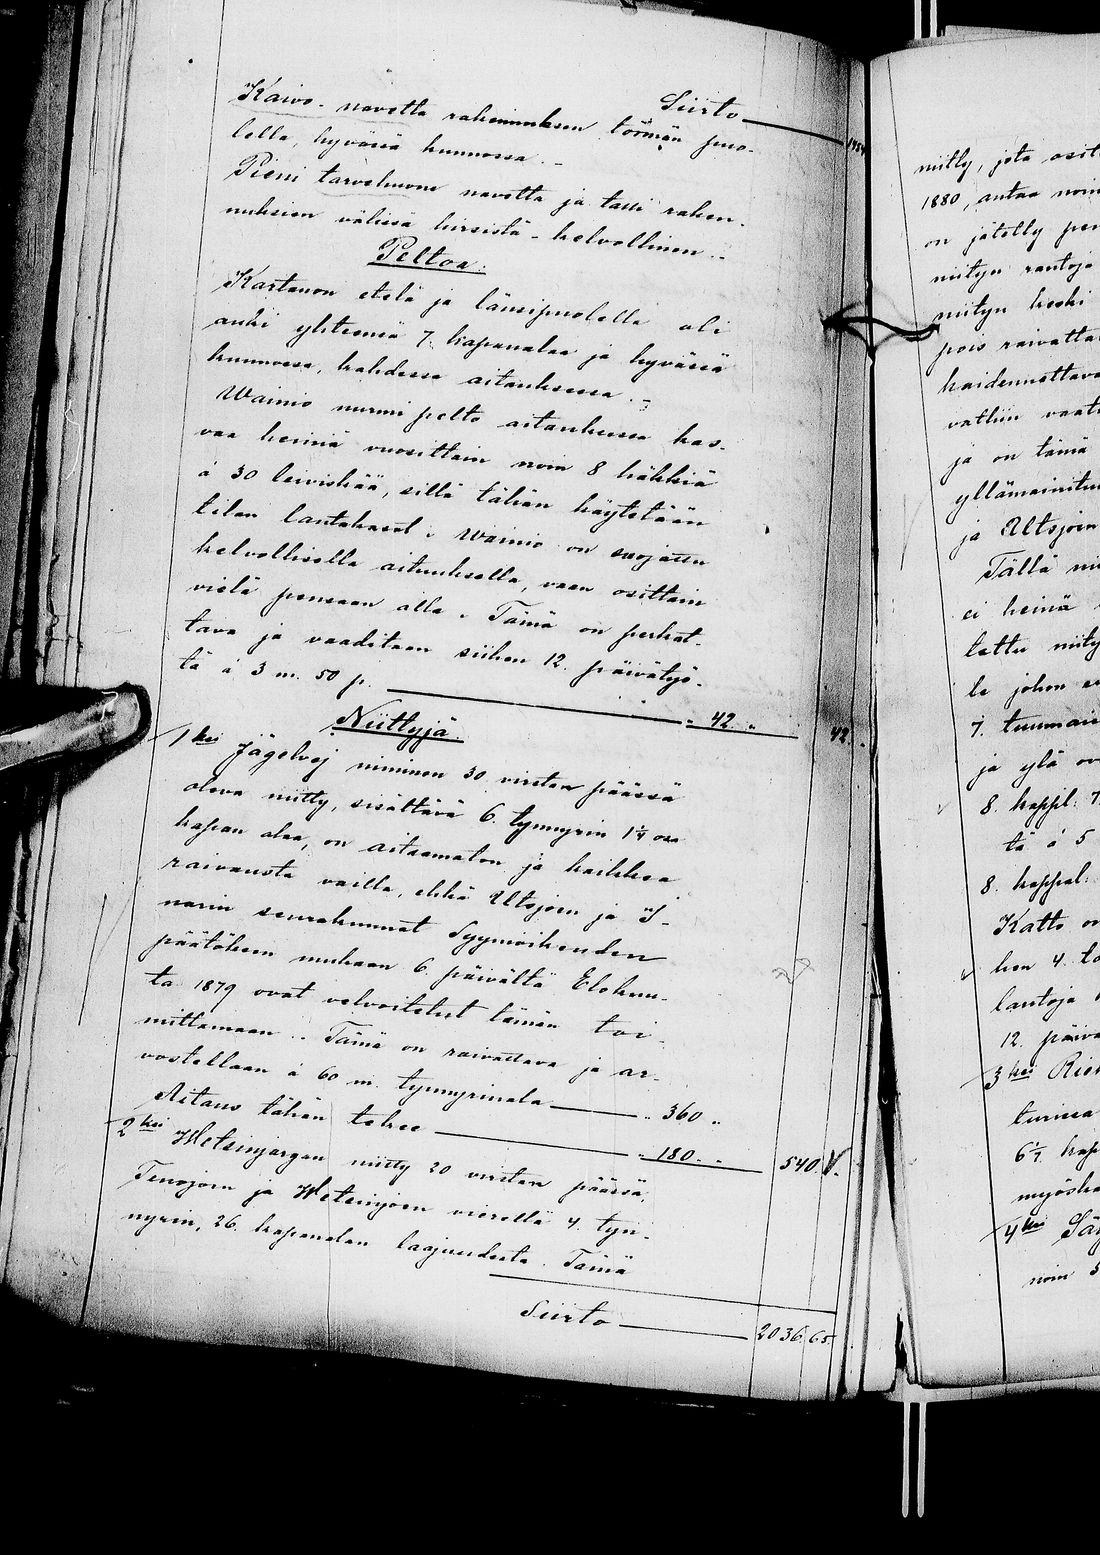 Siirto 1454
Kaivo- navetta rakennuksen törmän puo-
lella, hyvässä kunnossa. -
Pieni tarvehuone navetta ja talli raken-
nuksien välissä hirsistä - kelvollinen..
Peltoa.
Kartanon etelä ja länsipuolella oli
auki yhteensä 7. kapanalaa ja hyvässä
kunnossa, kahdessa aitauksessa. -
Wainio nurmi pelto aitauksessa kas-
vaa heiniä vuosittain noin 8 häkkiä
á 30 leiviskää, sillä tähän käytetään
tilan lantakasat. Wainio on suojattu
kelvollisella aitauksella, vaan osittain
vielä pensaan alla. Tämä on perkat-
tava ja vaaditaan siihen 12. päivätyö-
tä á 3 m. 50 p. " 42. " 42. "
Niittyjä.
1ksi Jägelvej niminen 30 virstan päässä
oleva niitty, sisältävä 6. tynnyrin 1¼ osa
kapan alaa, on aitaamaton ja kaikkea
raivausta vailla, ehkä Utsjoen ja I-
narin seurakunnat Syynioikeuden
päätöksen mukaan 6. päivältä Eloku-
ta 1879 ovat velvoitetut tämän toi-
mittamaan.. Tämä on raivattava ja ar-
vostellaan á 60 m. tynnyrinala " 360 "
Aitaus tähän tekee " 180. " 540. V.
2ksi Wetsinjargan niitty 20 virstan päässä
Tenojoen ja Wetsinjoen vierellä 4. tyn-
nyrin, 26. kapanalan laajuudesta. Tämä
Siirto 2036.65
niitty, jota osit
1880, antaa noin
on jätetty pen
niityn rantoja
niityn keski
pois raivatta
kaidennettava
vattiin vaat
ja on tämä
yllämainitu
ja Utsjoen
Tällä ni
ei heinä
tettu niity
le johon
7. tuumai
ja ylä ov
8. kappl. 7
tä á 5
8. kappal.
Katto on
hen 4. to
lautoja
12. päivä
3ksi Rie
turissa
6½ kap
myöskä
4ksi Sär
noin 5